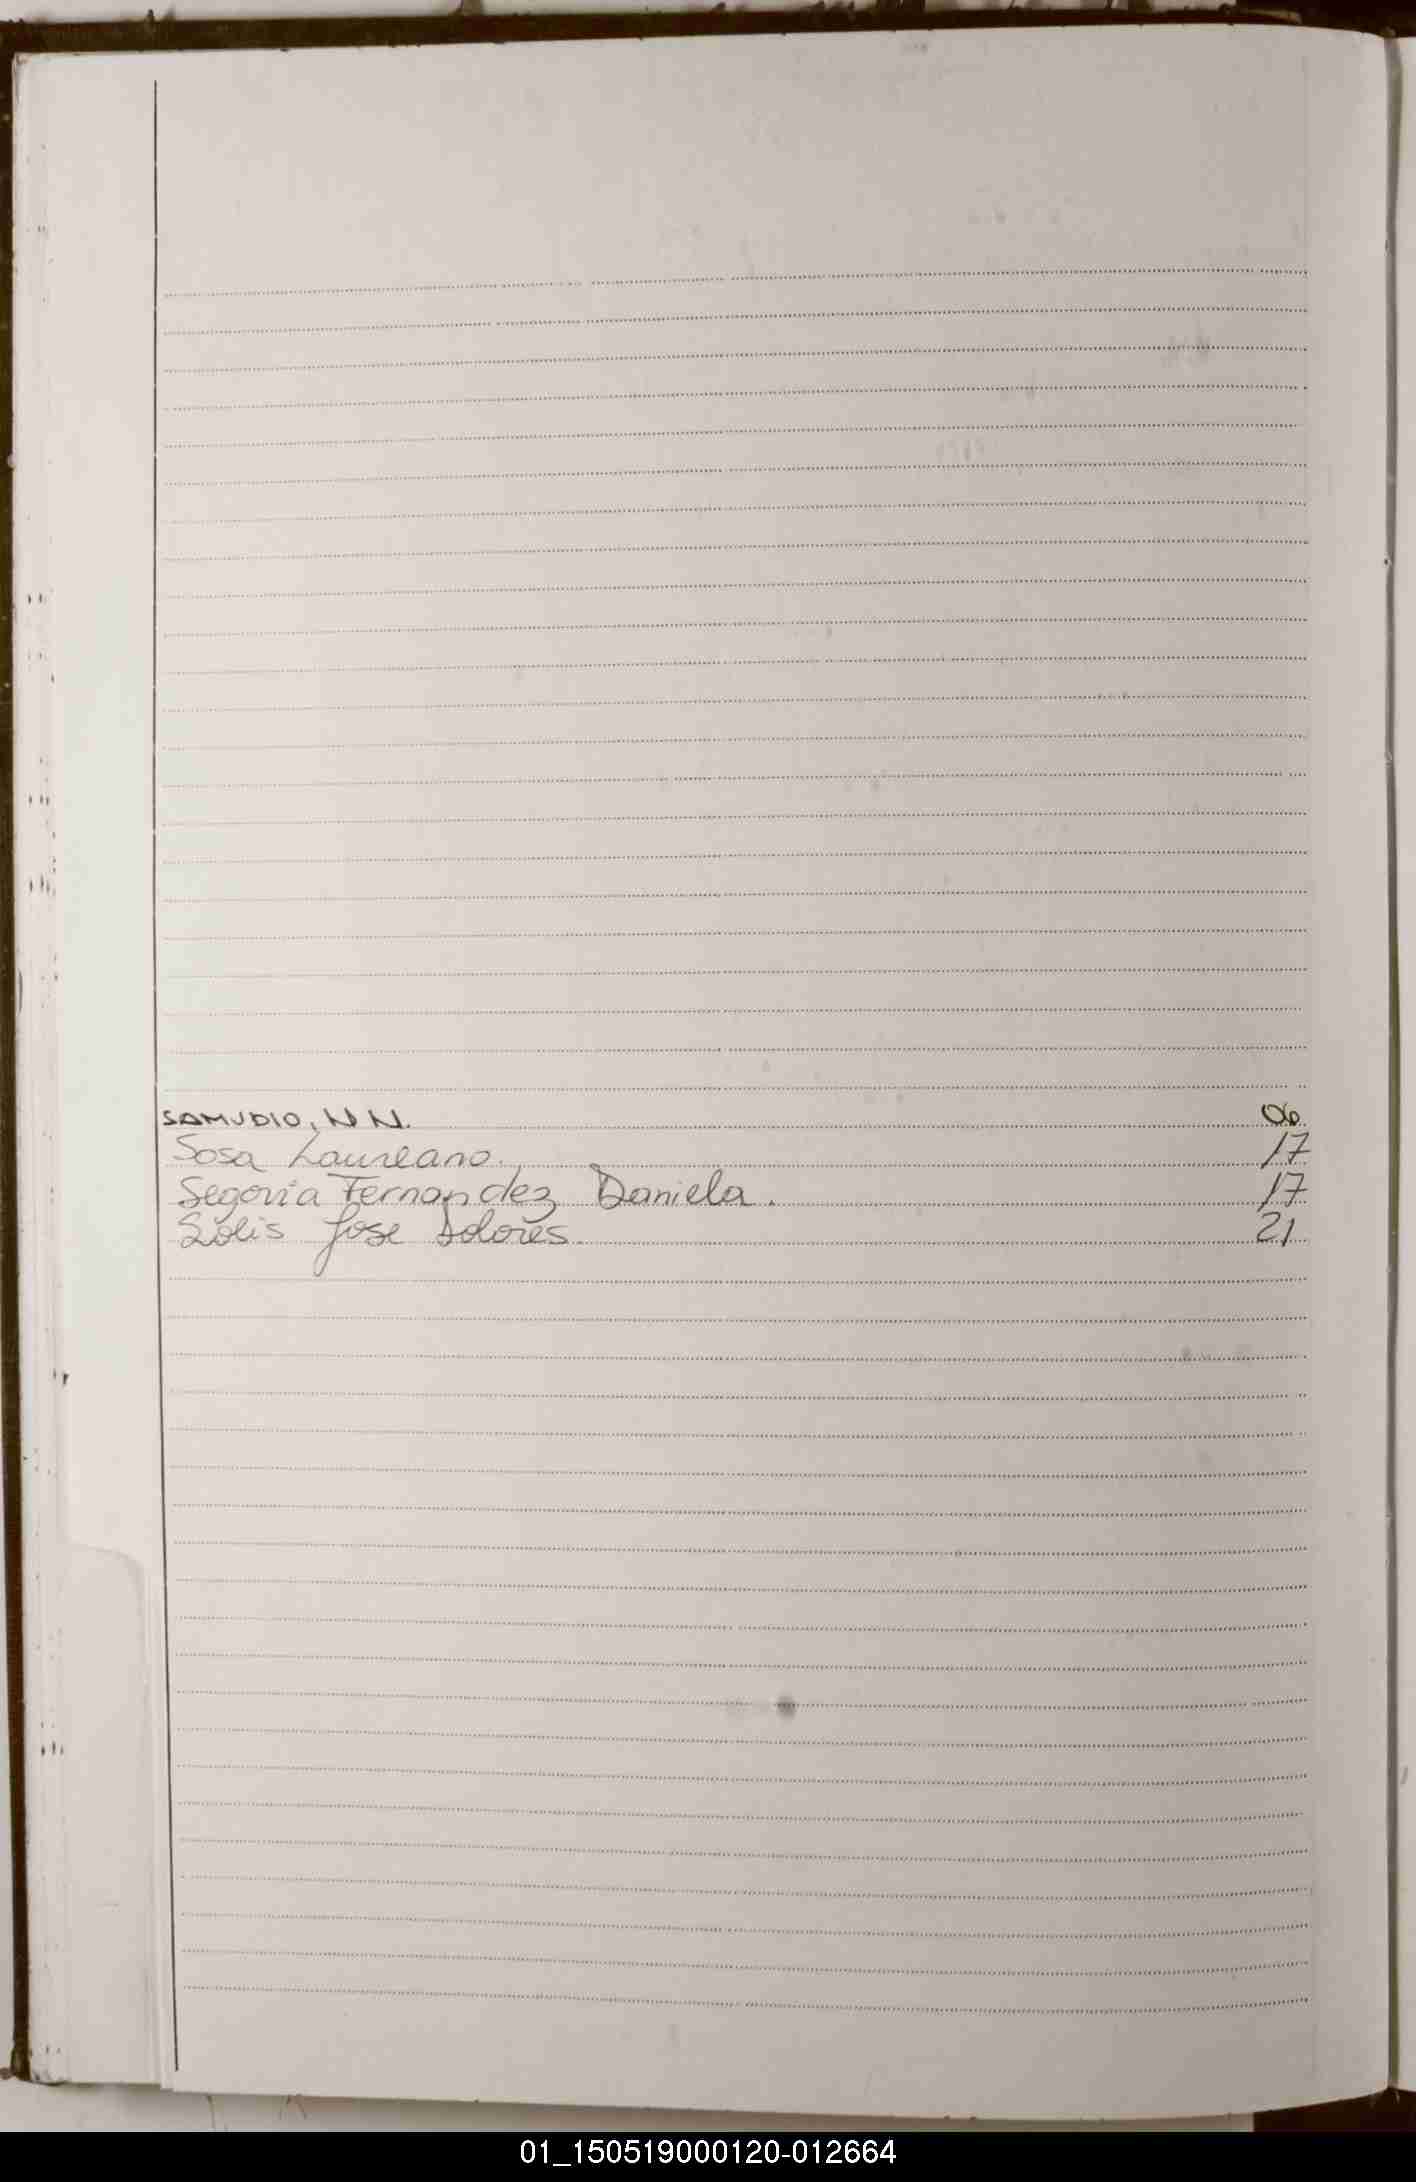 SAMUDIO, N N. 06
Sosa Laureano. 17
Segovia Fernandez Daniela. 17
Solis Jose Dolores. 21
01_150519000120-012664